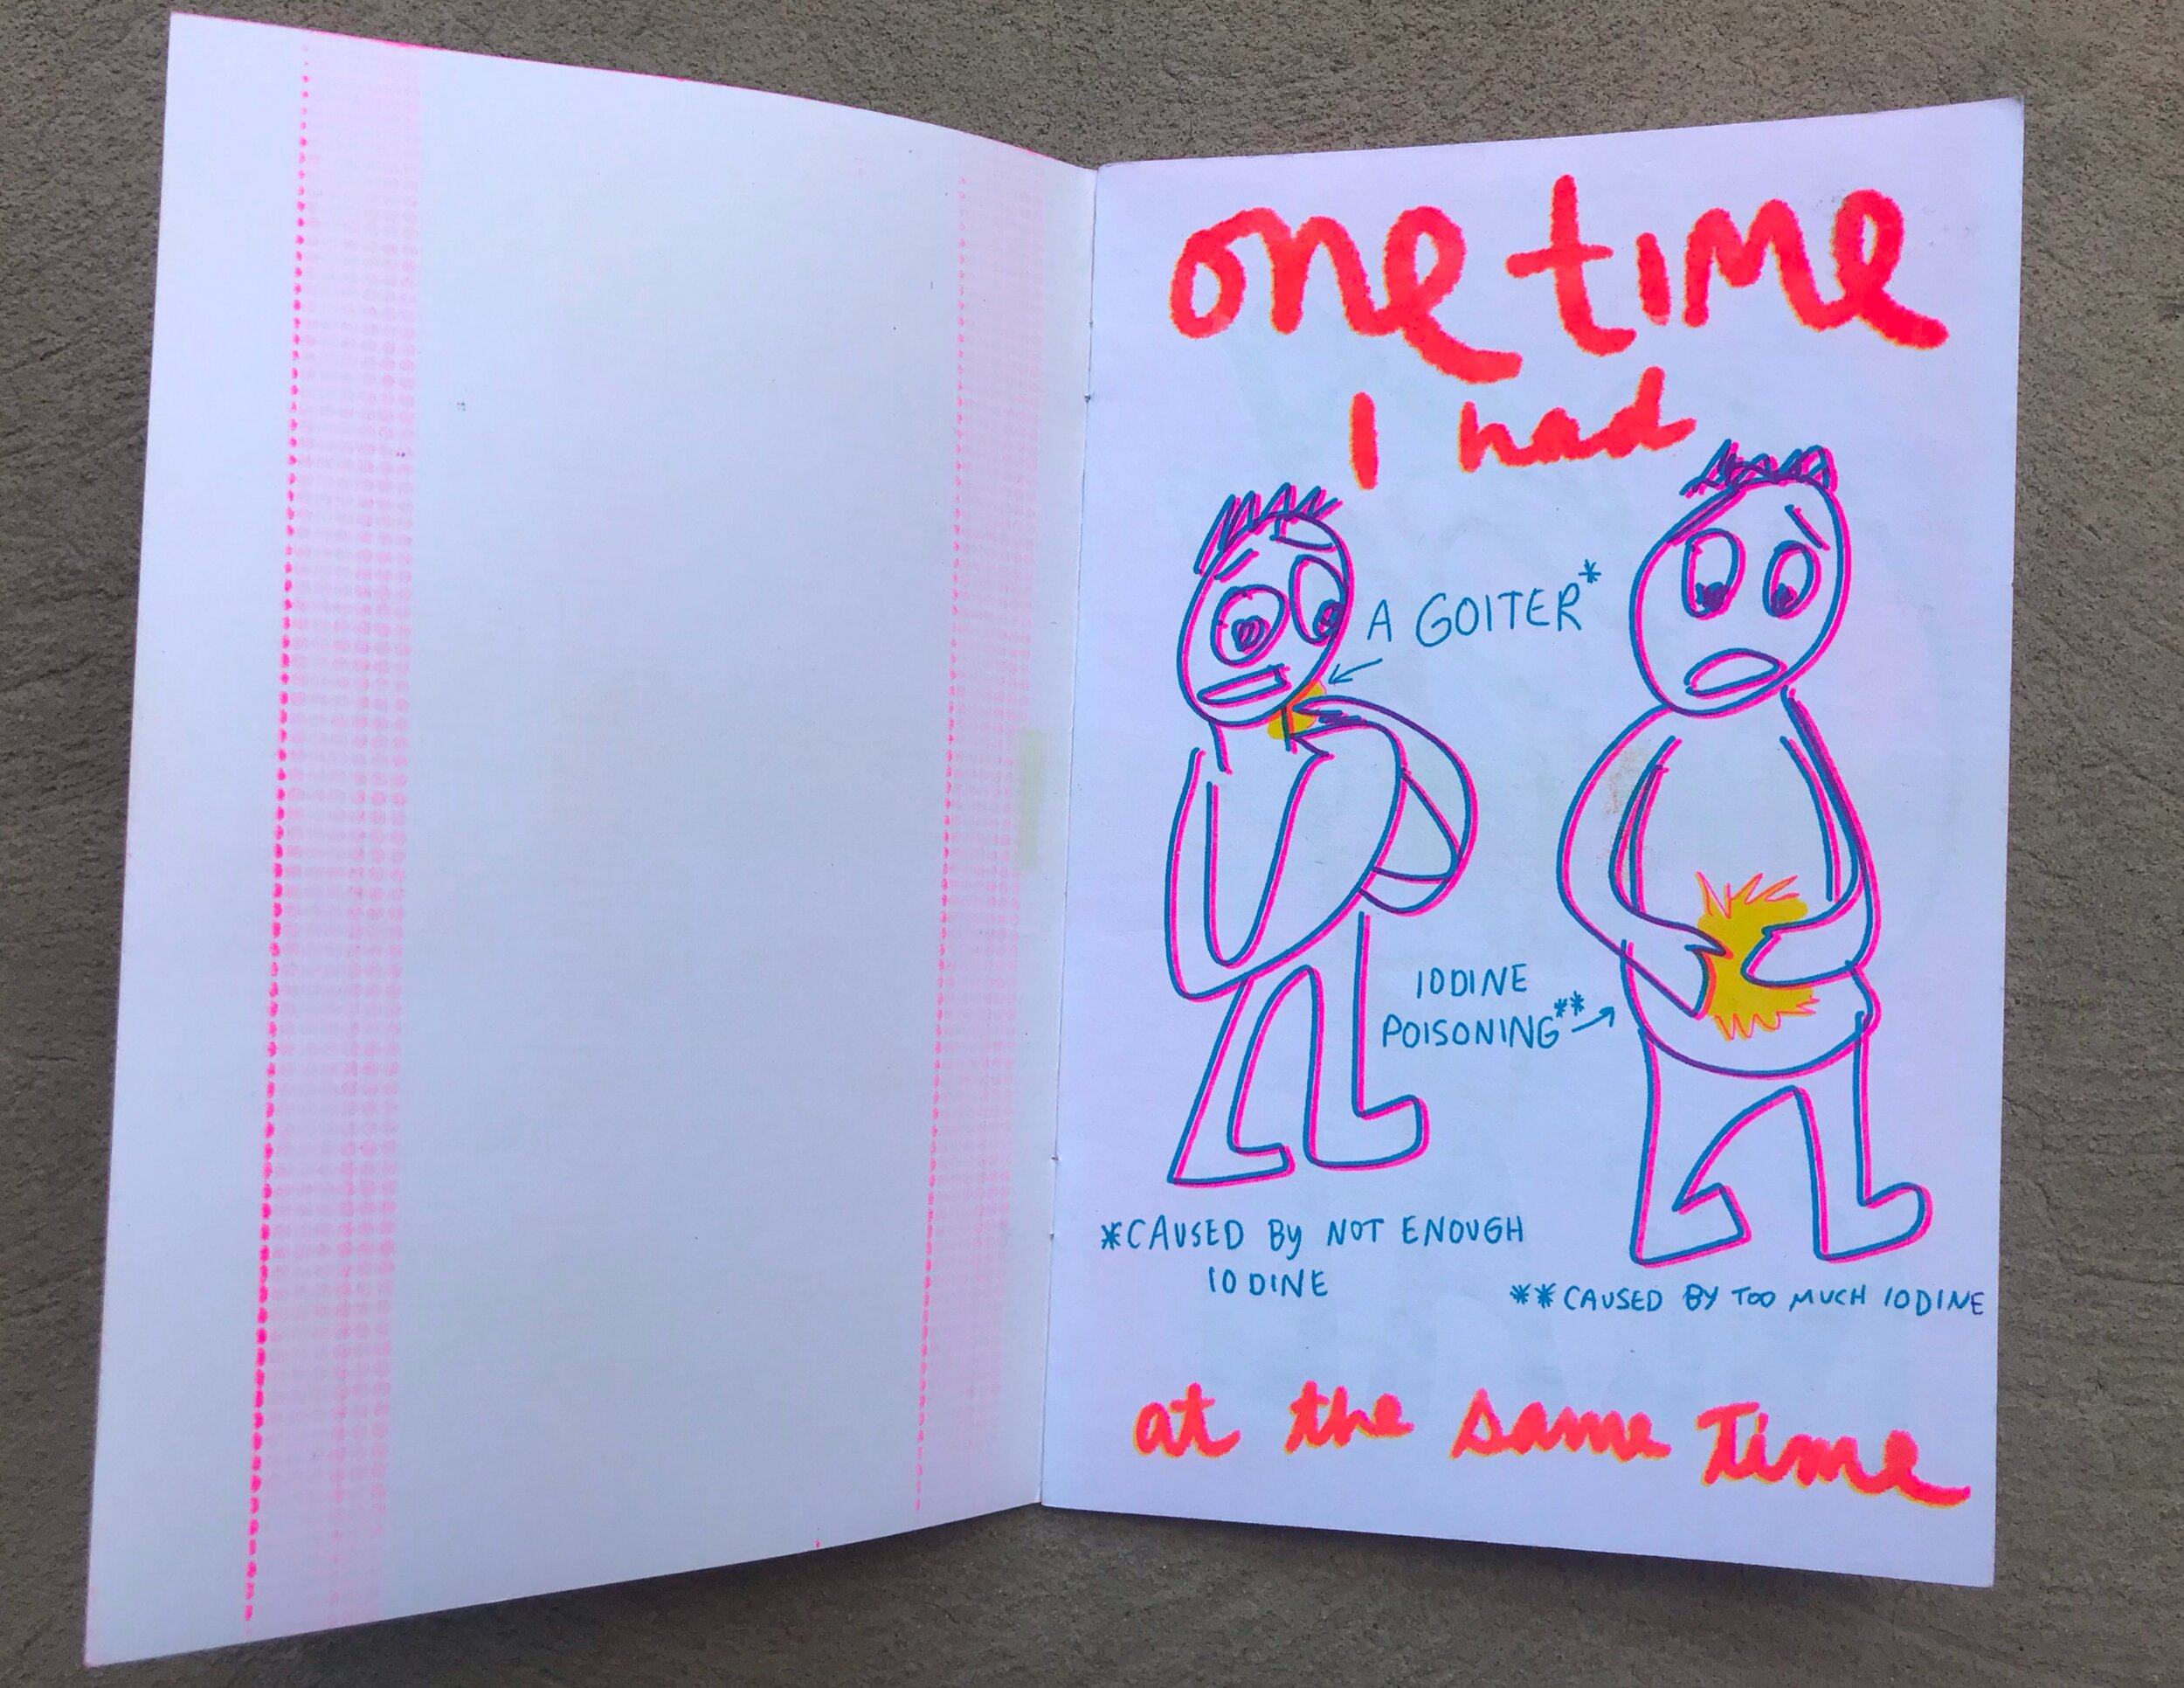 one time
I had
A GOITER*
IODINE
POISONING**
*CAUSED By NOT ENOUGH
IODINE
**CAUSED BY TOO MUCH IODINE
at the same Time